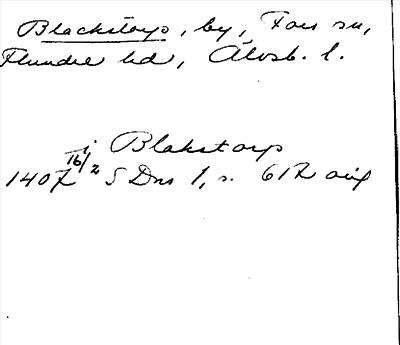 Blackstorp, by, Fors sn,
Flundre hd, Älvsb. l.
i Blakstorp
1407 16/2 SDns 1, s. 612 avs